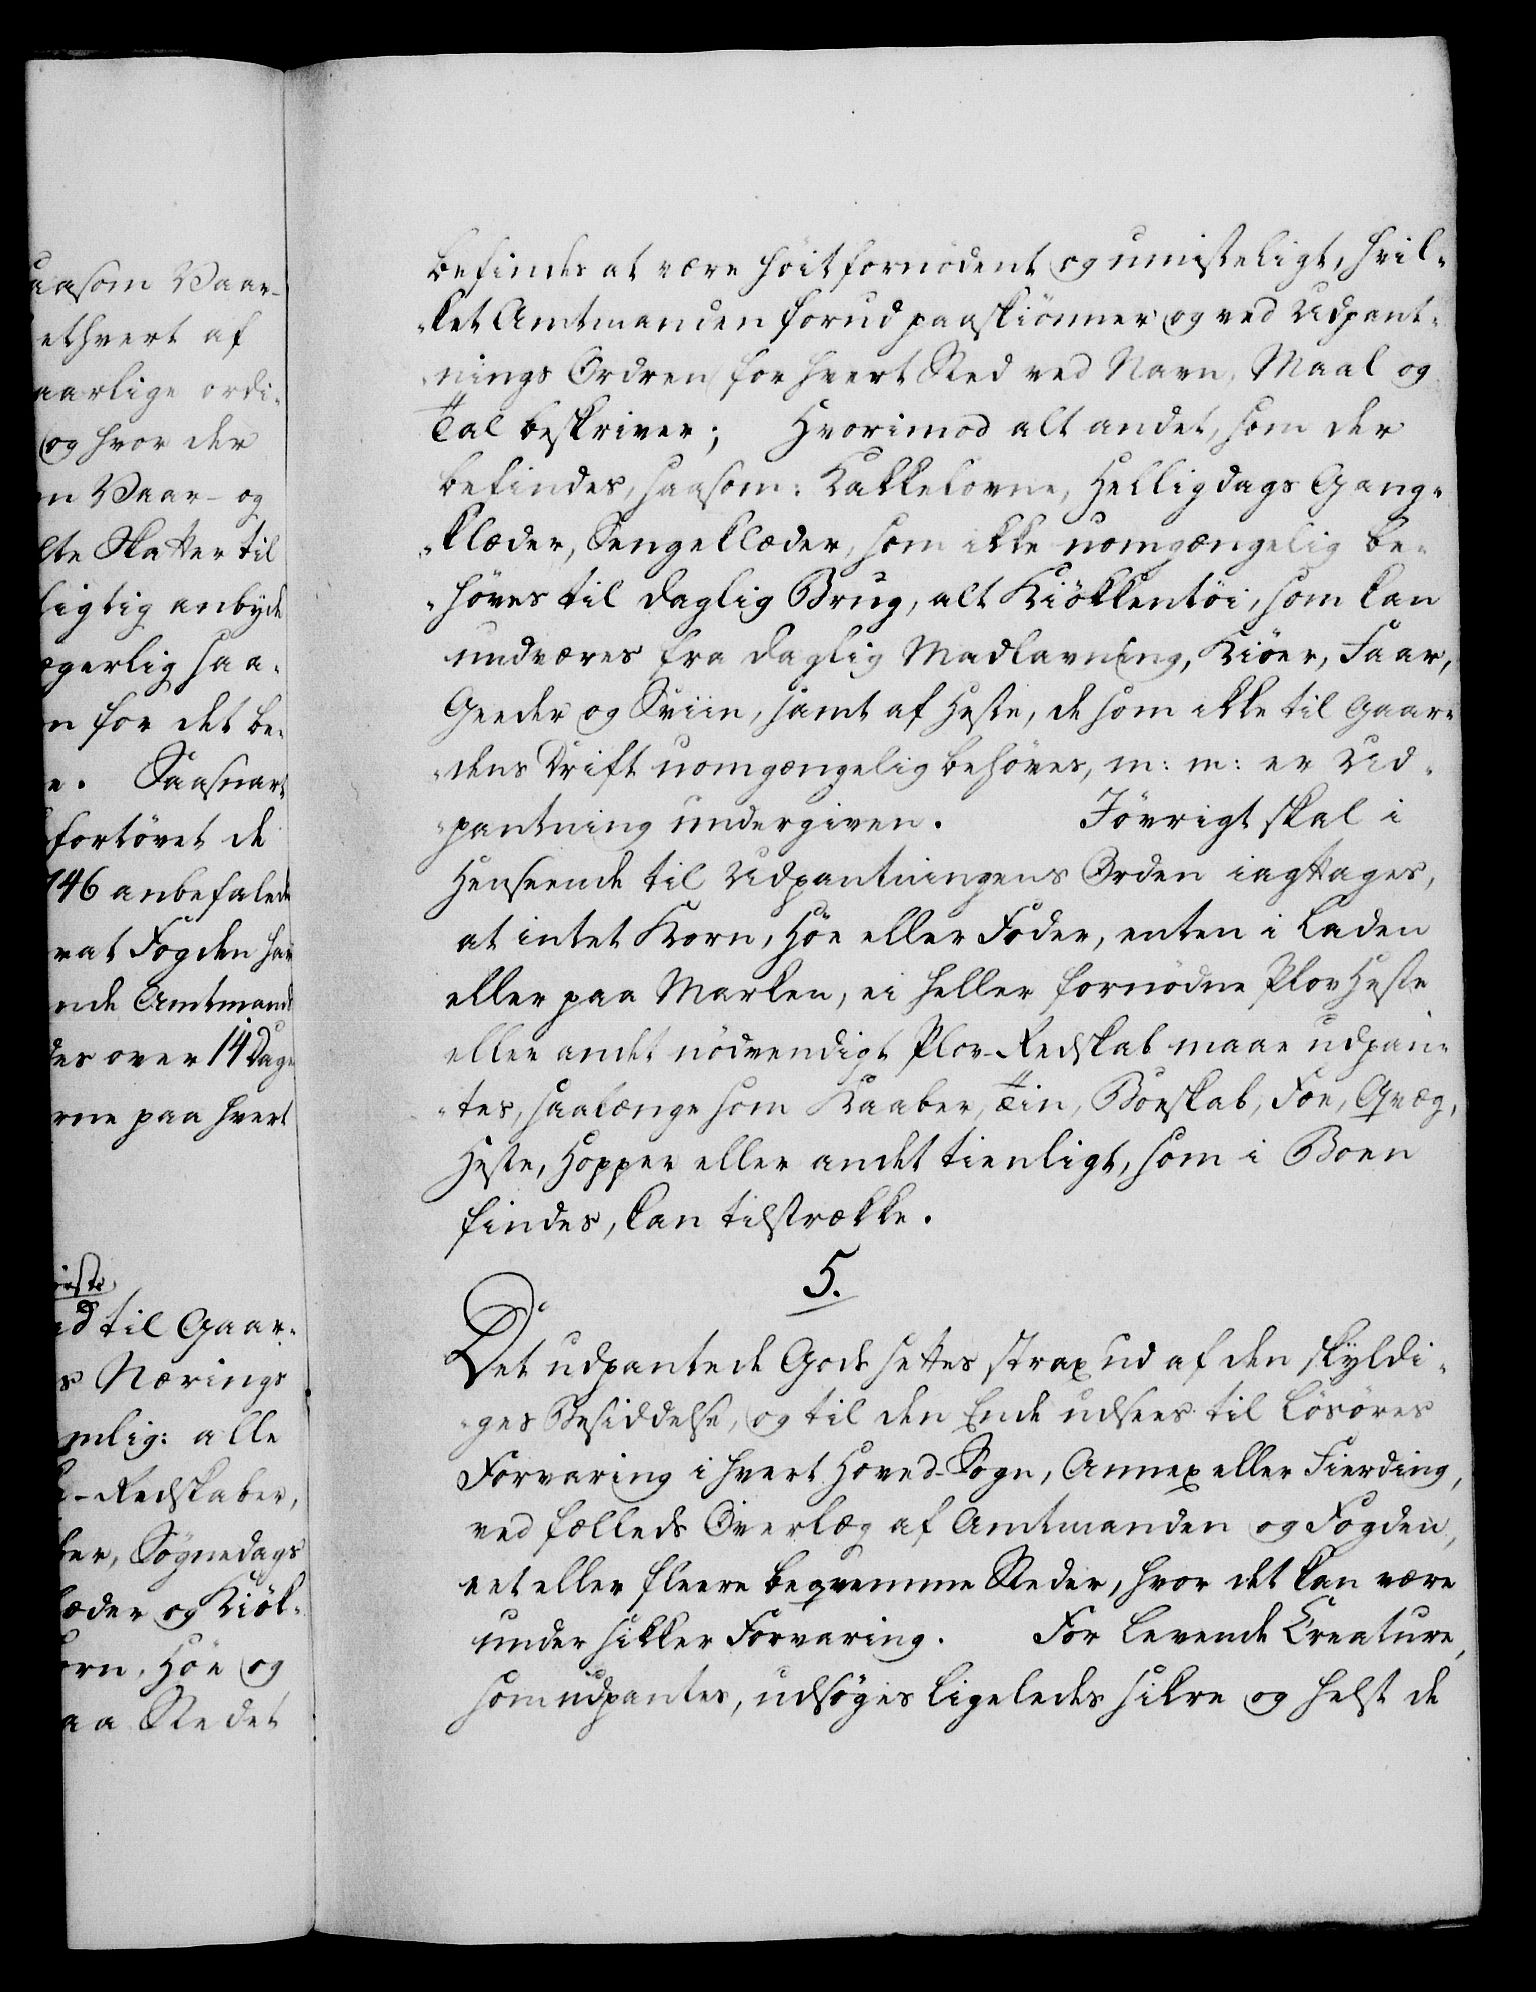 aasom Vaar-
ethvert af
aarlige ordi-
og hvor der
n Vaar- og
lte Skatter til
ligtig anbyde
ogerlig saa-
n for det be-
e. Saasnart
fortövet de
746 anbefalede
rat Fogden har
nde Amtmand
des over 14 Dage
rne paa hvert
d til Gaar-
s Nærings
mlig: alle
-Redskaber,
ker, Sögnedags
læder og Kiök-
orn, Höe og
aa Stedet
befindes at være höitfornödent og umisteligt, hvil-
-ket Amtmanden forud paaskiönner og ved Udpant-
-nings Ordren for hvert Sted ved Navn, Maal og
Tal beskriver; Hvorimod alt andet, som der
befindes, saasom: Kakkelovne, Helligdags Gang-
-klæder, Sengeklæder, som ikke uomgængelig be-
-höves til daglig Brug, alt Kiökkentöi, som kan
undværes fra daglig Madlavning, Kiöer, Faar,
Geeder og Sviin, samt af Heste, de som ikke til Gaar-
-dens Drift uomgængelig behöves, m: m: er Ud-
-pantning undergiven. Iövrigt skal i
Henseende til Udpantningens Orden iagttages,
at intet Korn, Höe eller Foder, enten i Laden
eller paa Marken, ei heller fornödne Plov Heste
eller andet nödvendigt Plov-Redskab maae udpan-
-tes, saalænge som Kaaber, Tin, Boeskab, Foe, Qvæg,
Heste, Hopper eller andet tienligt, som i Boen
findes, kan tilstrække.
5.
Det udpantede Gods settes strax ud af den skyldi-
-ges Besiddelse, og til den Ende udsees til Lösöres
Forvaring i hvert Hoved-Sogn, Annex eller Fierding,
ved fælleds Överlæg af Amtmanden og Fogden,
eet eller fleere beqvemme Steder, hvor det kan være
under sikker Forvaring. For levende Creature,
som udpantes, udsöges ligeledes sikre og helst de